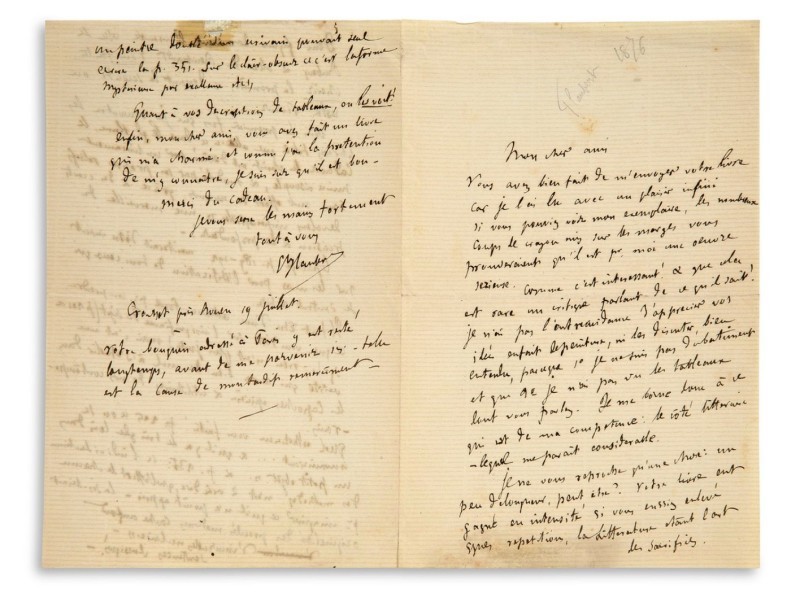 un peintre doublé d'un écrivain pouvait seul
écrire la p. 351. sur le clair-obscur c'est la forme
mystérieuse par excellence etc,
Quant à vos descriptions de tableaux, on les voit!
enfin, mon cher ami, vous avez fait un livre
qui m'a charmé. et comme j'ai la prétention
de m'y connaître, je suis sûr qu'il est bon –
merci du cadeau.
je vous serre les mains fortement
tout à vous
G Flaubert
Croisset près Rouen 19 juillet.
votre bouquin adressé à Paris y est resté
longtemps, avant de me parvenir ici – telle
est la cause de mon tardif remerciement –
1876
Flaubert
Mon cher ami
Vous avez bien fait de m'envoyer votre livre
car je l'ai lu avec un plaisir infini
si vous pouviez voir mon exemplaire, les nombreux
coups de crayon mis sur les marges vous
prouveraient qu'il est pr. moi une oeuvre
sérieuse. comme c'est intéressant! & que cela
est rare un critique parlant de ce qu'il sait!
je n'ai pas l'outrecuidance d'apprécier vos
idées en fait de peinture, ni les discuter, bien
entendu, parce que 1º je ne suis pas du bâtiment
et que 2º je n'ai pas vu les tableaux
dont vous parlez. Je me borne donc à ce
qui est de ma compétence: le côté littéraire
– lequel me paraît considérable.
Je ne vous reproche qu'une chose: un
peu de longueur, peut être? Votre livre eût
gagné en intensité si vous eussiez enlevé
qques répétitions, la littérature étant l'art
des sacrifices.